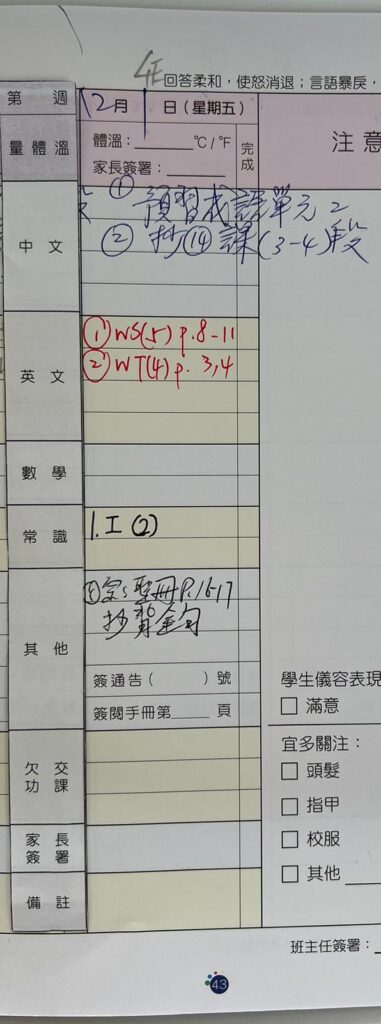 4E
回答柔和，使怒消退；言語暴戾，
第 週
12月1日（星期五）
量體溫
體溫：______°C/°F
家長簽署：
完成
注意
中文
① 預習成語單元2
② 抄⑭課(3-4)段
英文
① WS(5) p.8-11
② WT(4) p.3,4
數學
常識
1. I (2)
其他
宗:聖冊P.16-17
抄 金句
簽通告（ ）號
簽閱手冊第____頁
學生儀容表現
□ 滿意
宜多關注：
□ 頭髮
□ 指甲
□ 校服
□ 其他
欠交功課
家長簽署
備註
班主任簽署：
43